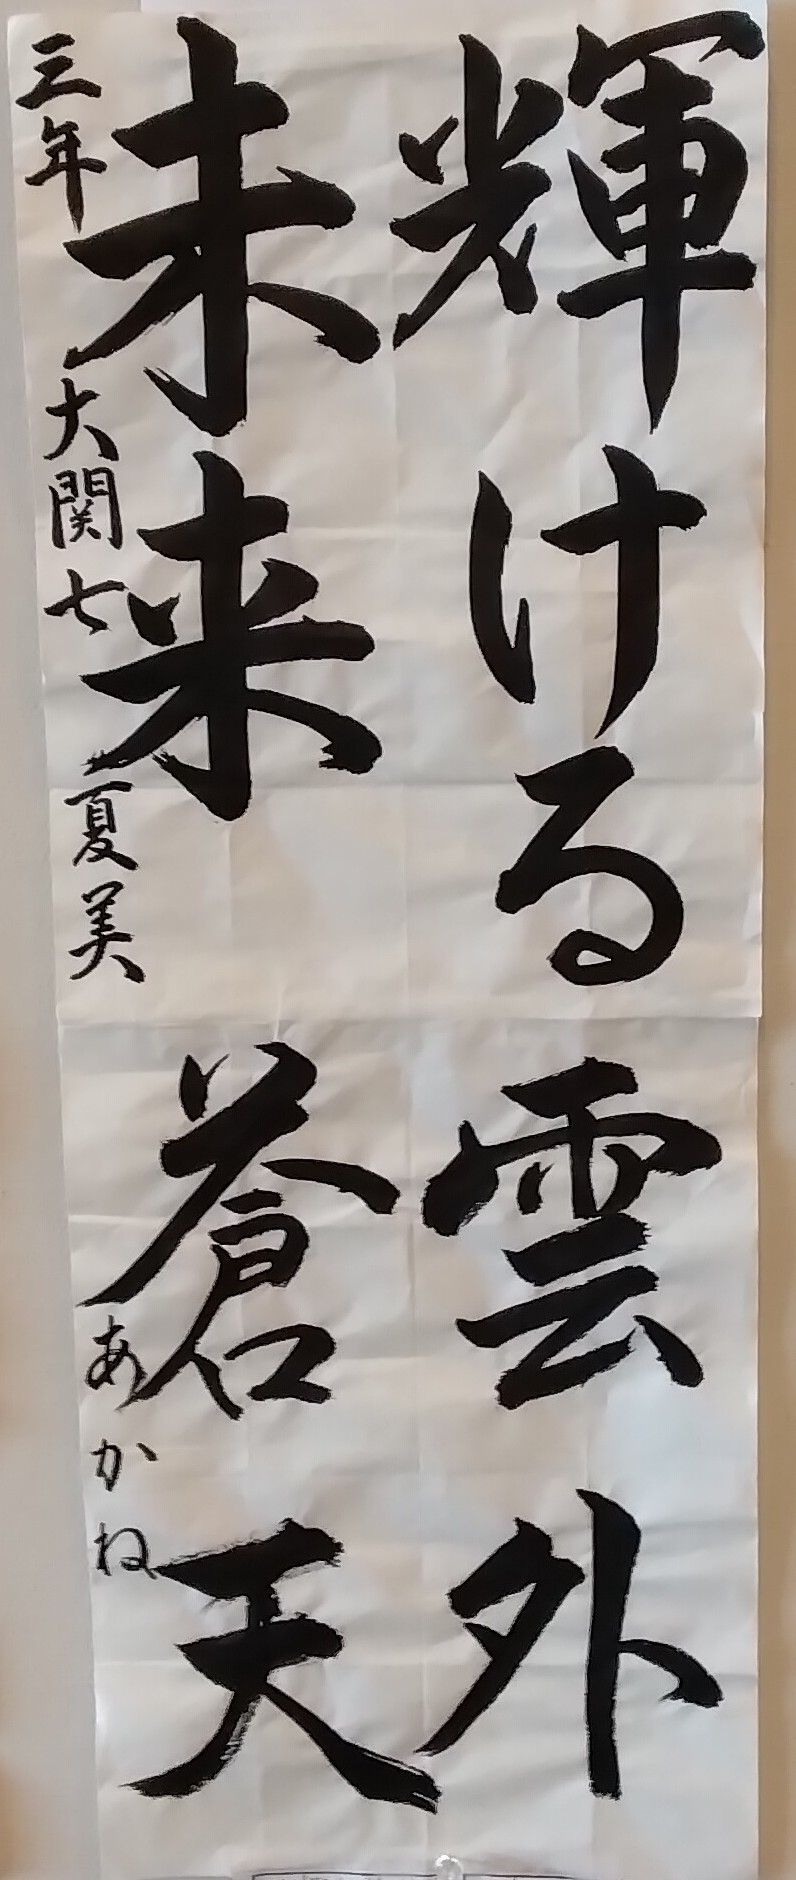 輝ける
未来
雲外
蒼天
三年 大関七 夏美 あかね